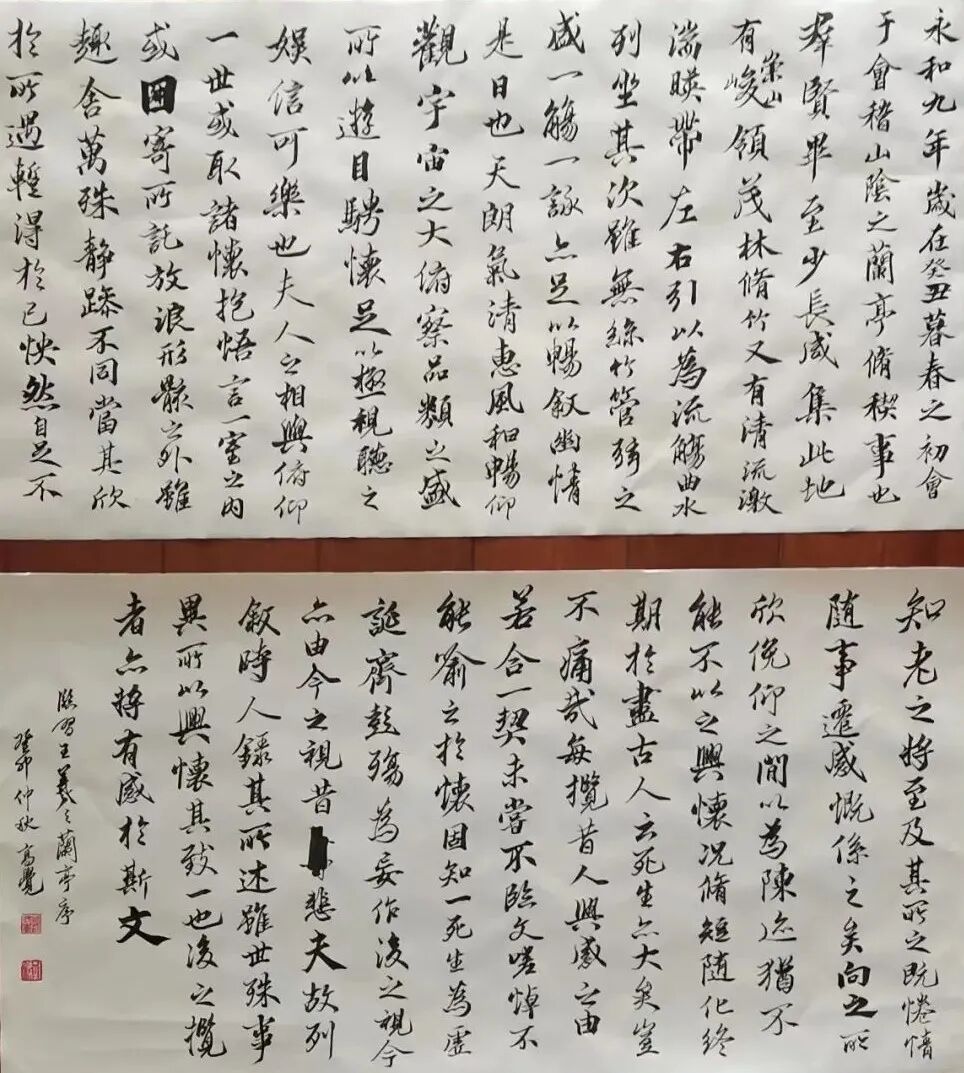 永和九年歲在癸丑暮春之初會
于會稽山陰之蘭亭脩稧事也
羣賢畢至少長咸集此地
有崇山峻領茂林脩竹又有清流激
湍暎帶左右引以為流觴曲水
列坐其次雖無絲竹管弦之
盛一觴一詠亦足以暢叙幽情
是日也天朗氣清惠風和暢仰
觀宇宙之大俯察品類之盛
所以遊目騁懷足以極視聽之
娛信可樂也夫人之相與俯仰
一世或取諸懷抱悟言一室之內
或因寄所託放浪形骸之外雖
趣舍萬殊静躁不同當其欣
於所遇蹔得於己怏然自足不
知老之將至及其所之既惓情
隨事遷感慨係之矣向之所
欣俛仰之閒以為陳迹猶不
能不以之興懷況脩短隨化終
期於盡古人云死生亦大矣豈
不痛哉每攬昔人興感之由
若合一契未嘗不臨文嗟悼不
能喻之於懷固知一死生為虛
誕齊彭殤為妄作後之視今
亦由今之視昔悲夫故列
敘時人錄其所述雖世殊事
異所以興懷其致一也後之攬
者亦將有感於斯文
臨習王羲之蘭亭序
癸卯仲秋高